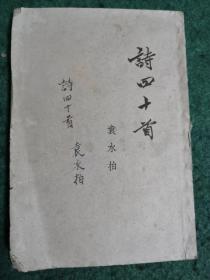 詩四十首
袁水拍
詩四十首
袁水拍